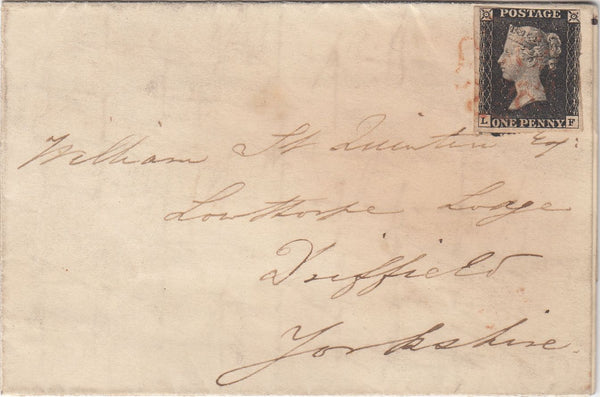 POSTAGE
L ONE PENNY. F
William St Quintin Esq:
Lowthorpe Lodge
Driffield
Yorkshire.